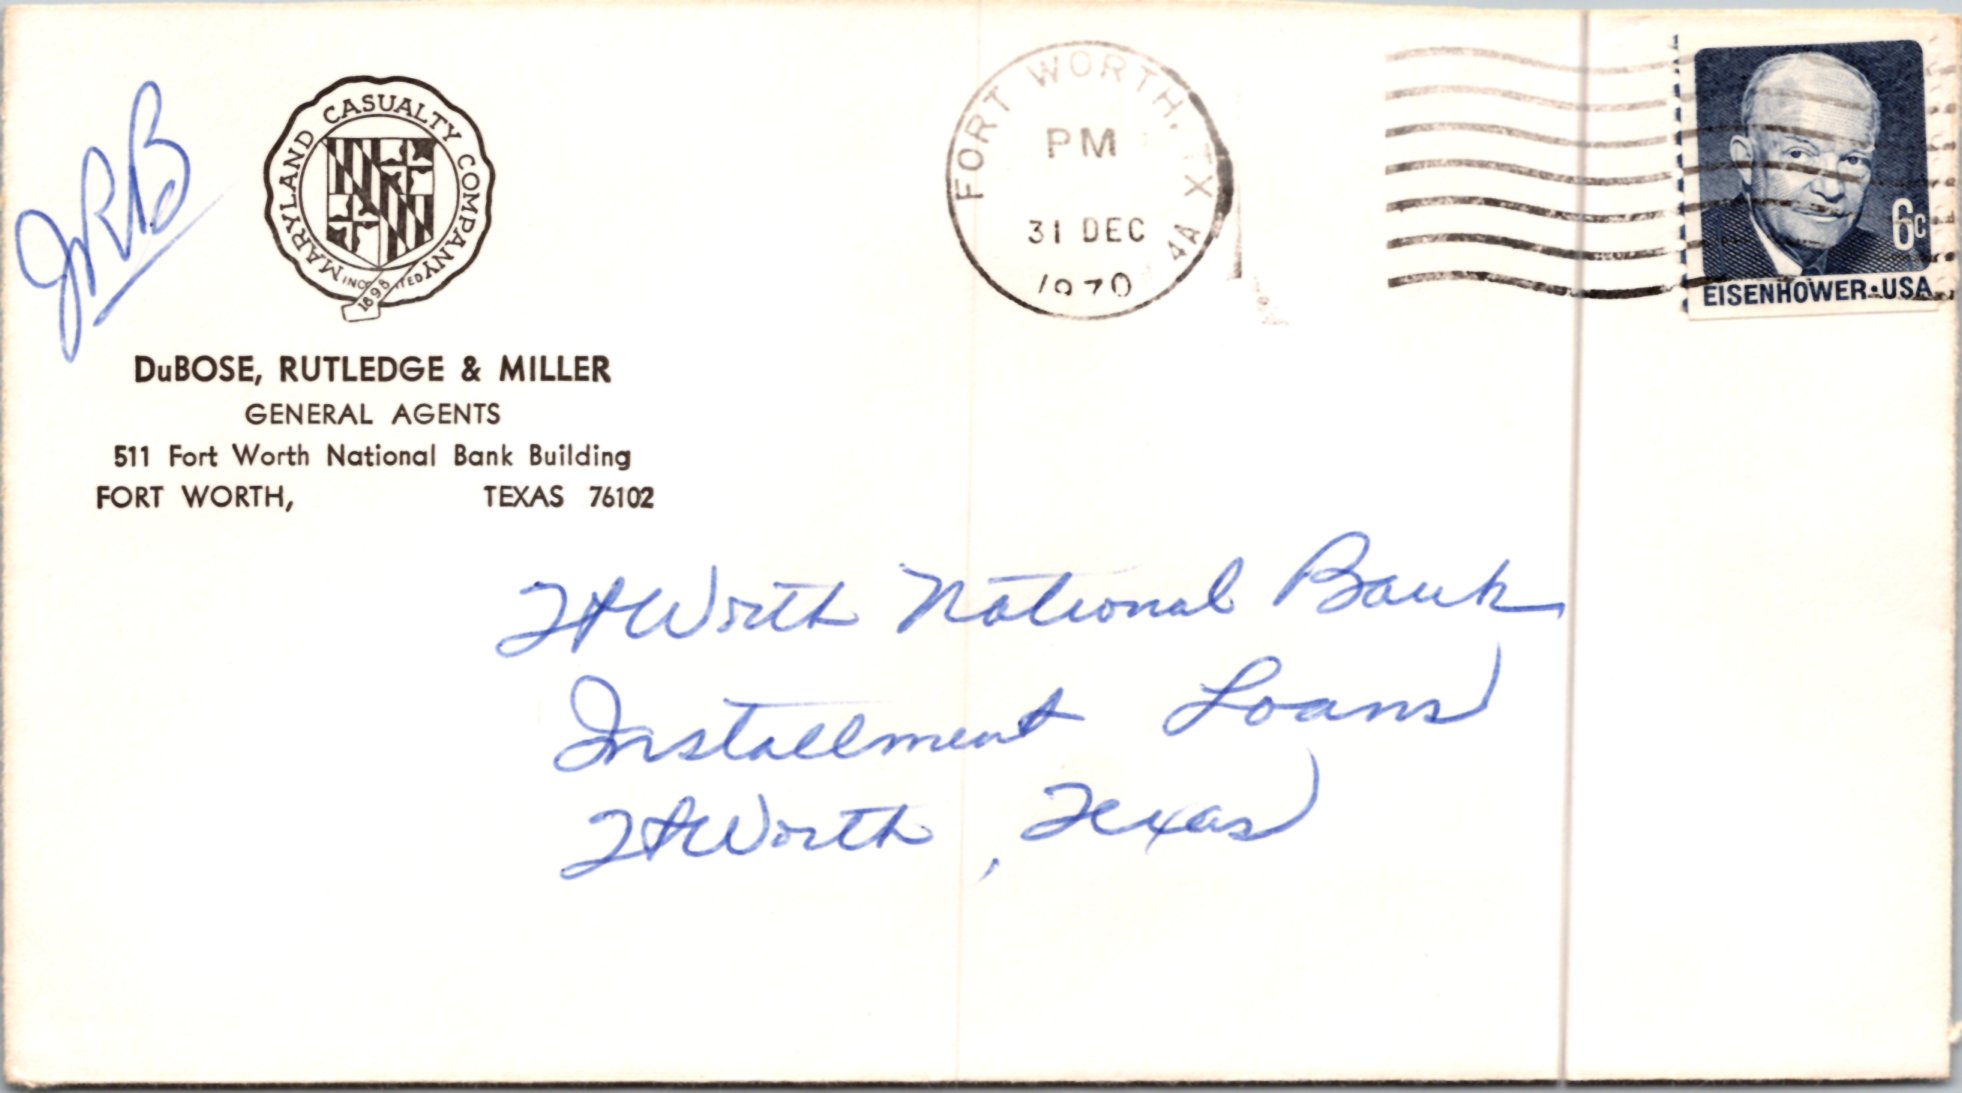 JRB
MARYLAND CASUALTY COMPANY
1898
DuBOSE, RUTLEDGE & MILLER
GENERAL AGENTS
511 Fort Worth National Bank Building
FORT WORTH, TEXAS 76102
FORT WORTH, TX
PM
31 DEC
1970
4A
6c
EISENHOWER·USA
Ft Worth National Bank
Installment Loans
Ft Worth, Texas